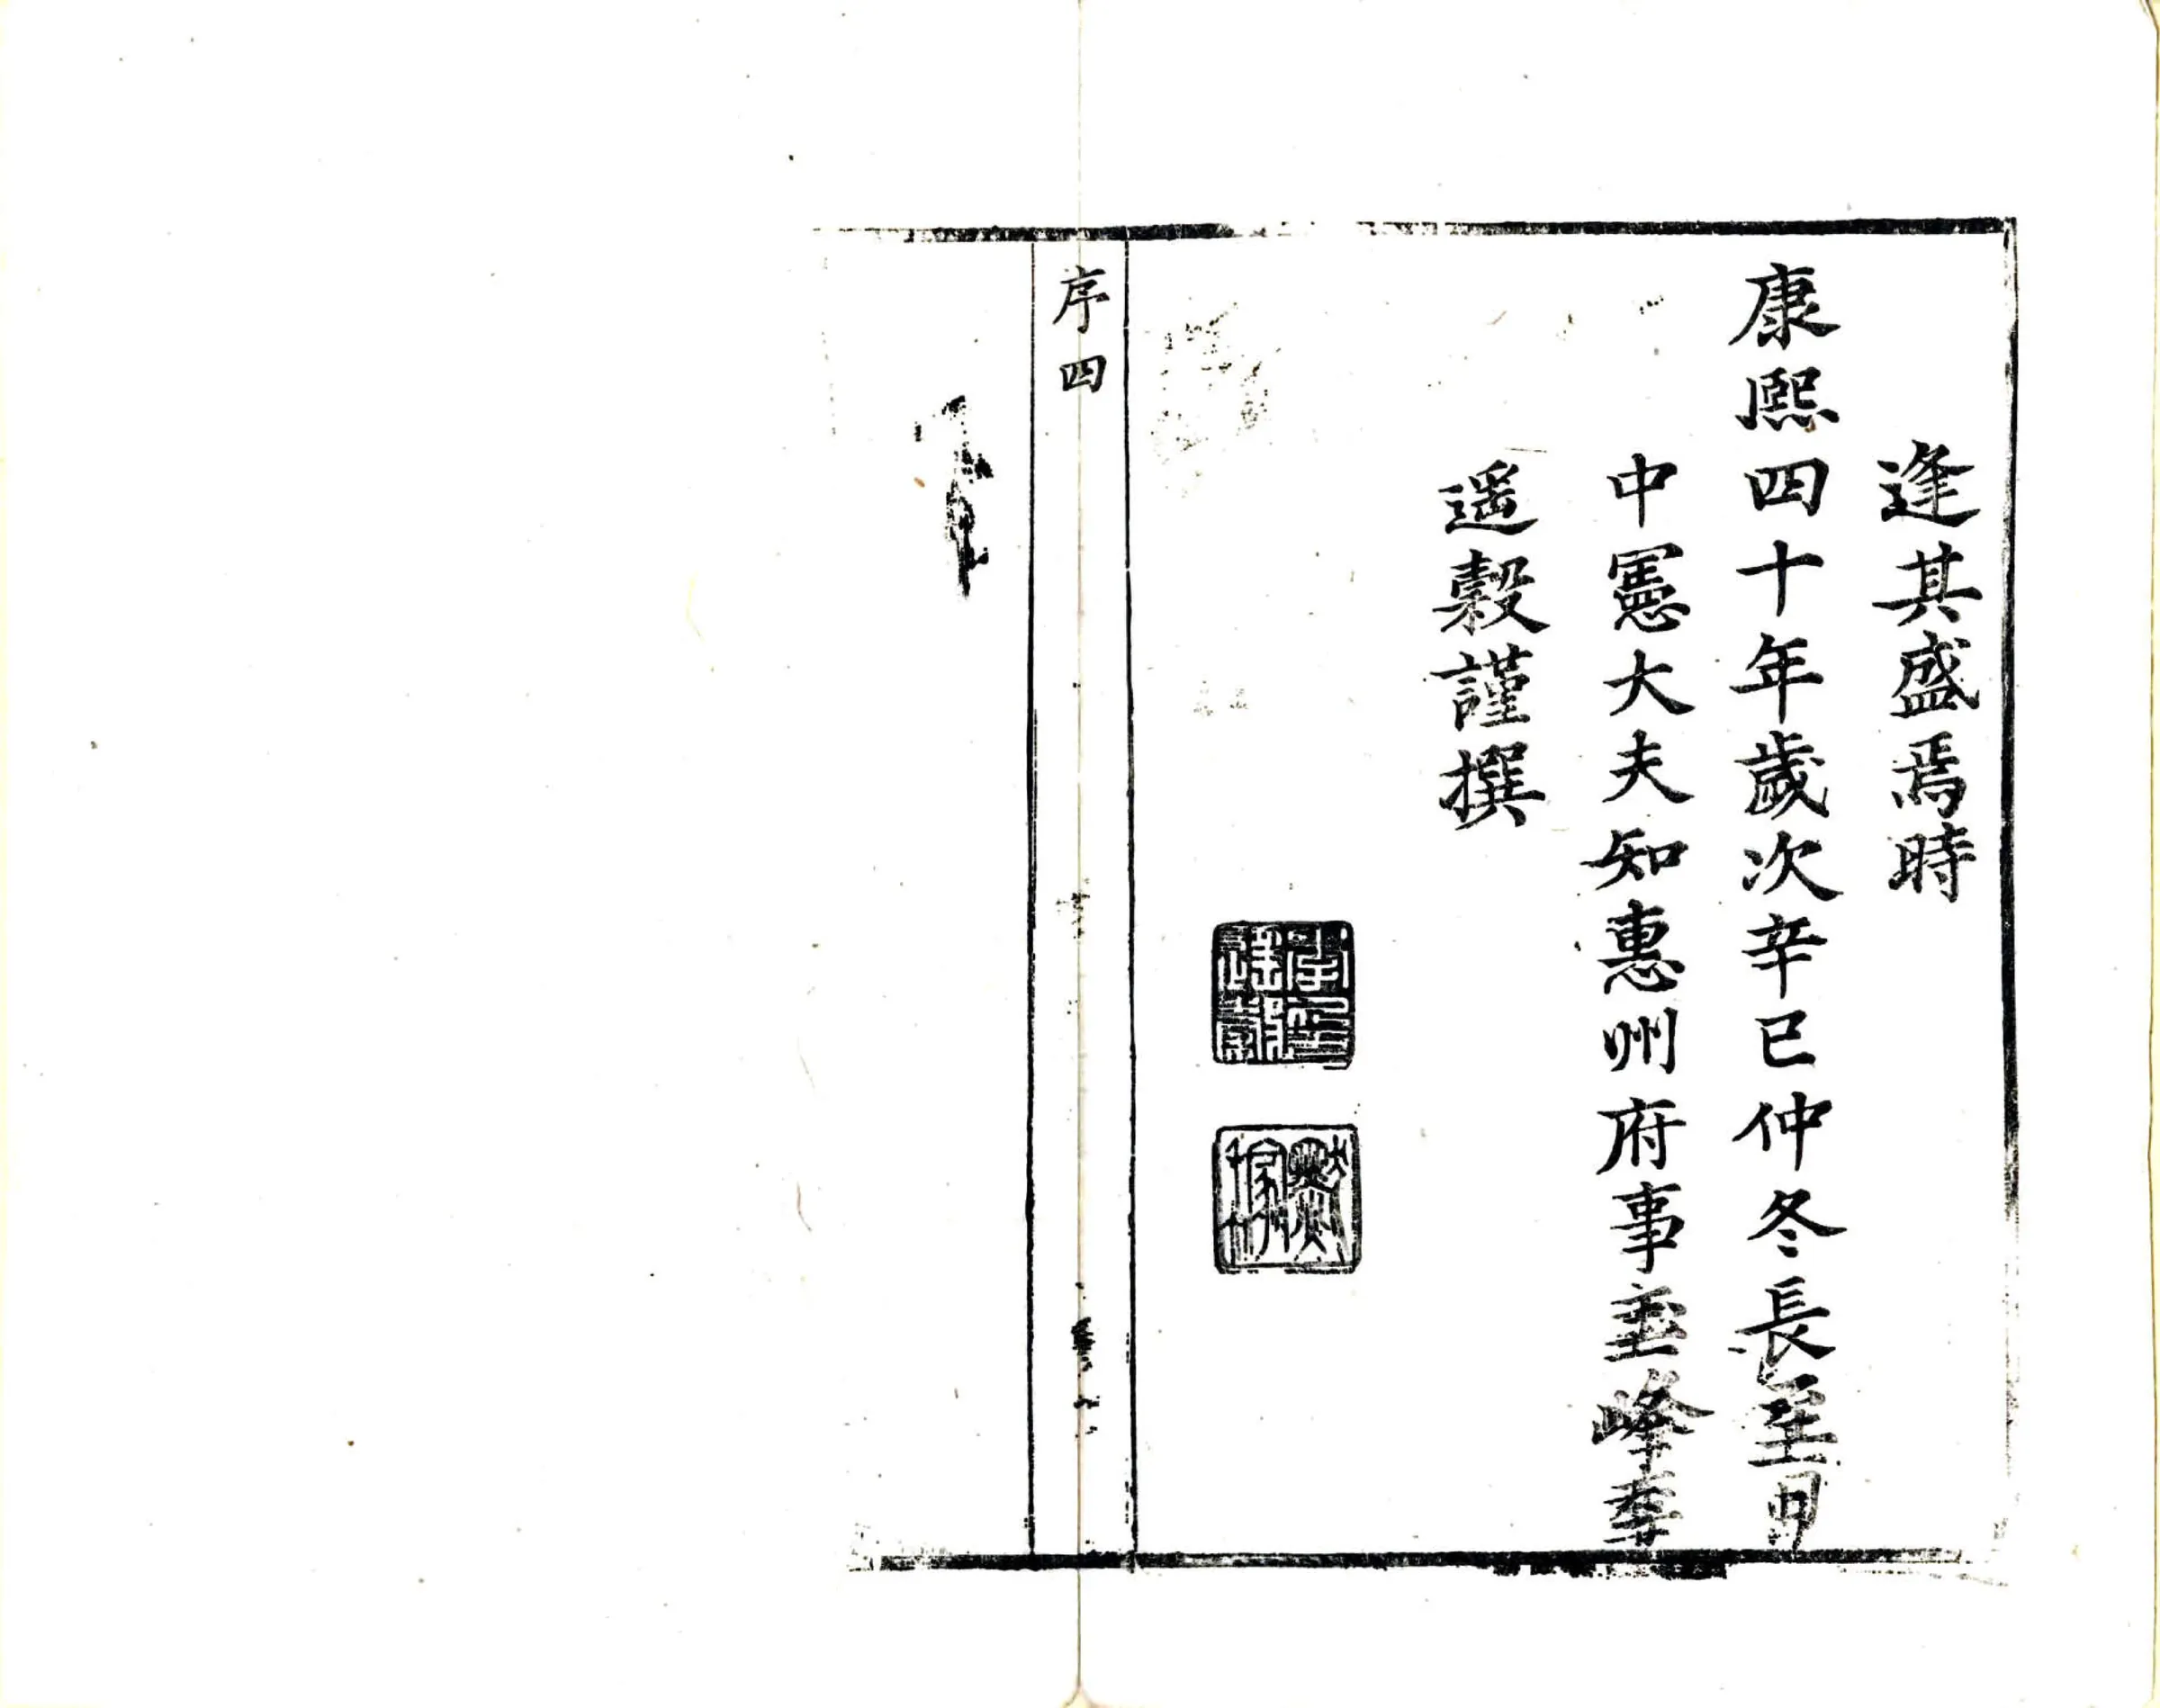 逢其盛焉時
康熙四十年歲次辛巳仲冬長至月
中憲大夫知惠州府事
峰李
遥穀謹撰
序四